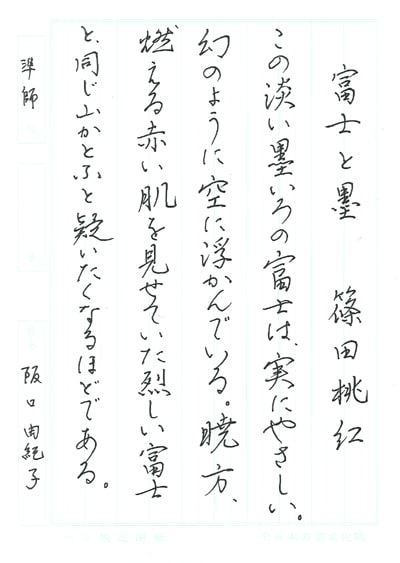 富士と墨　篠田桃紅
この淡い墨いろの富士は、実にやさしい。
幻のように空に浮かんでいる。暁方、
燃える赤い肌を見せていた烈しい富士
と、同じ山かとふと疑いたくなるほどである。
準師　阪口由紀子